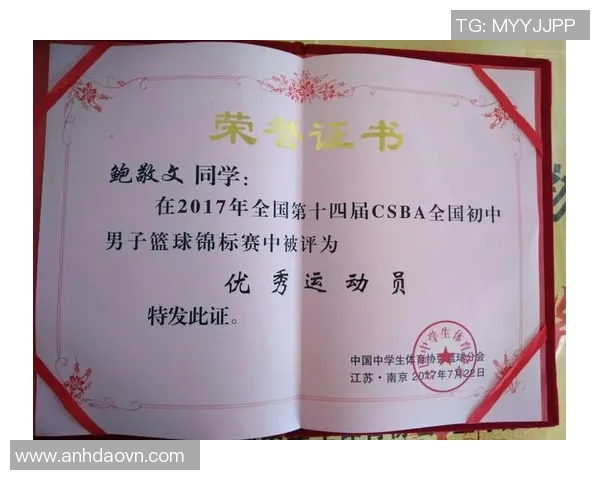 TG: MYYJJPP
荣誉证书
鲍敬文 同学：
在2017年全国第十四届CSBA全国初中
男子篮球锦标赛中被评为
优秀运动员
特发此证。
中国中学生体育协会篮球分会
江苏·南京 2017年7月22日
www.anhdaovn.com